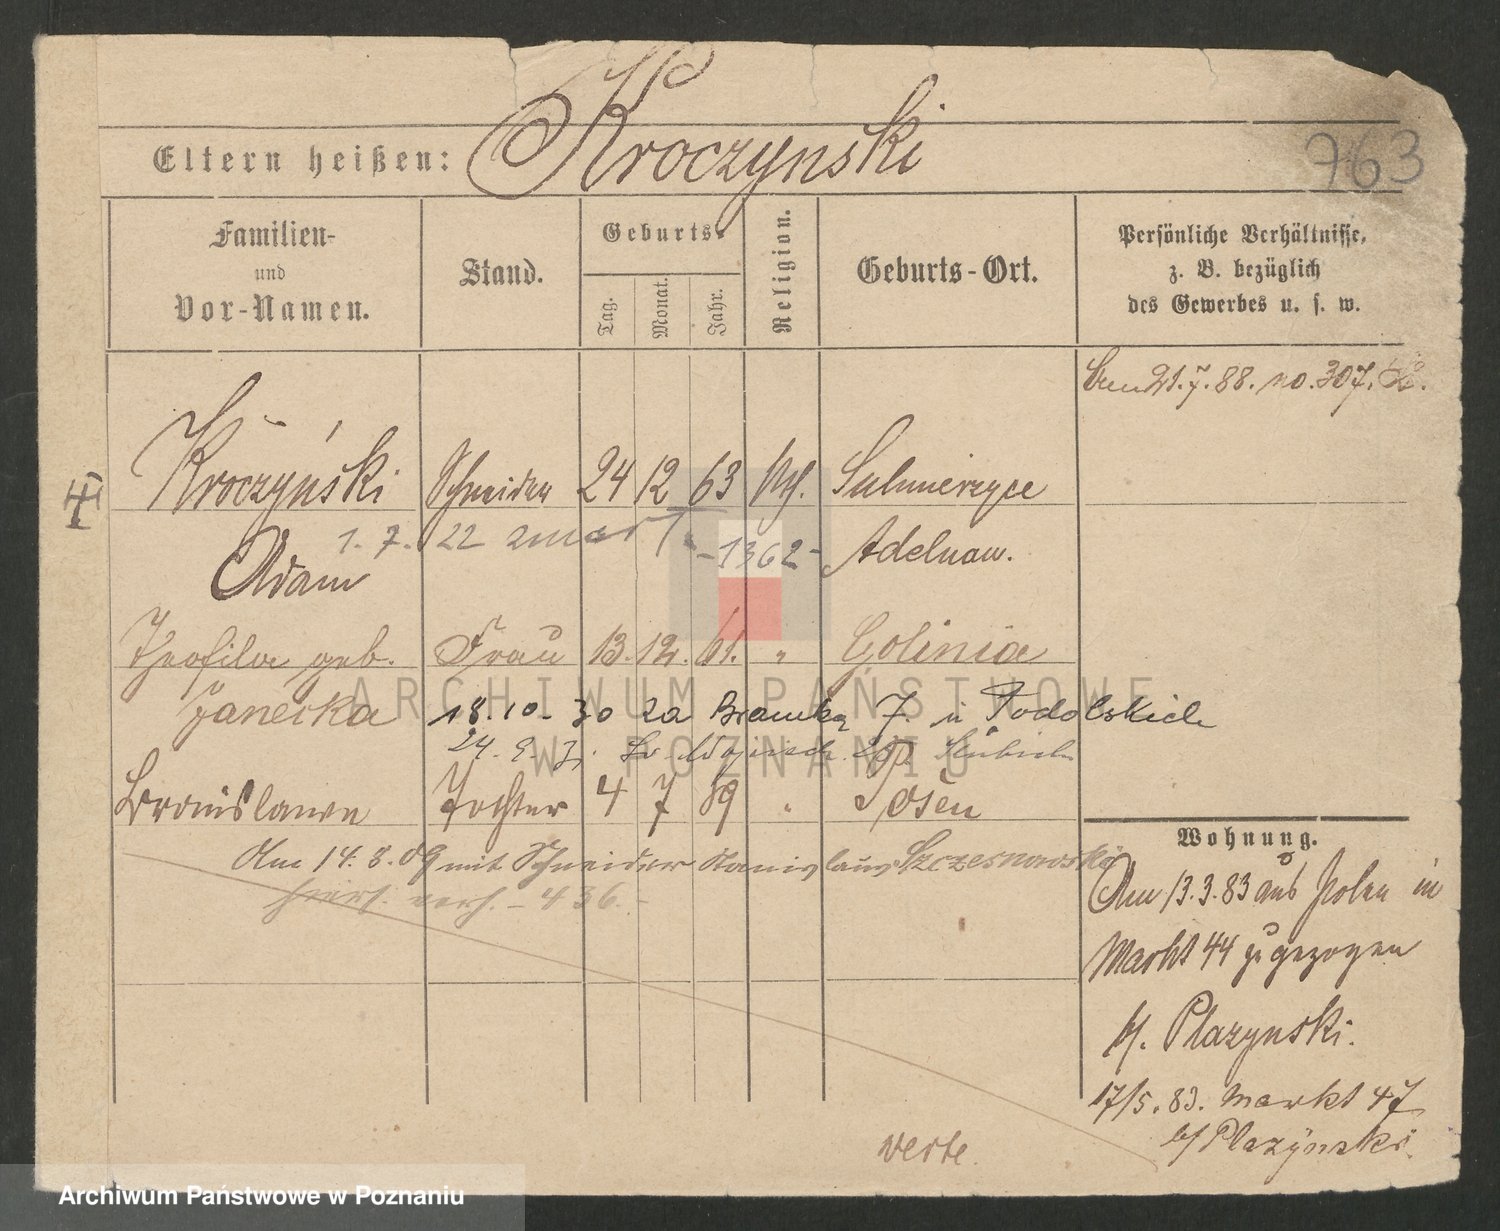 Eltern heißen: Kroczynski
763
Familien-
und
Vor-Namen.
Stand.
Geburts-
Tag.
Monat.
Jahr.
Religion.
Geburts-Ort.
Persönliche Verhältnisse,
z. B. bezüglich
des Gewerbes u. s. w.
21.7.88. no. 307.
Kroczyński Schneider 24 12 63 Sulmierzyce
1. 7. 22 zmarł -1362- Adelnau.
Adam
Theofila geb. Frau 13. 12. 61. " Golinia
Janecka
18.10.30 za Bramką 7. u Podolskich
24. 9.
Bronislawa Tochter 4 7 89 " Posen
Am 14.8.09 mit Schneider Stanislaus Szczesnowski
hiers. verh. - 436. -
Wohnung.
Am 13.3.83 aus Polen in
Markt 44 zugezogen
b/. Plazynski.
17/5.83. Markt 47
b/ Plazynski.
verte.
ARCHIWUM PAŃSTWOWE
W POZNANIU
Archiwum Państwowe w Poznaniu